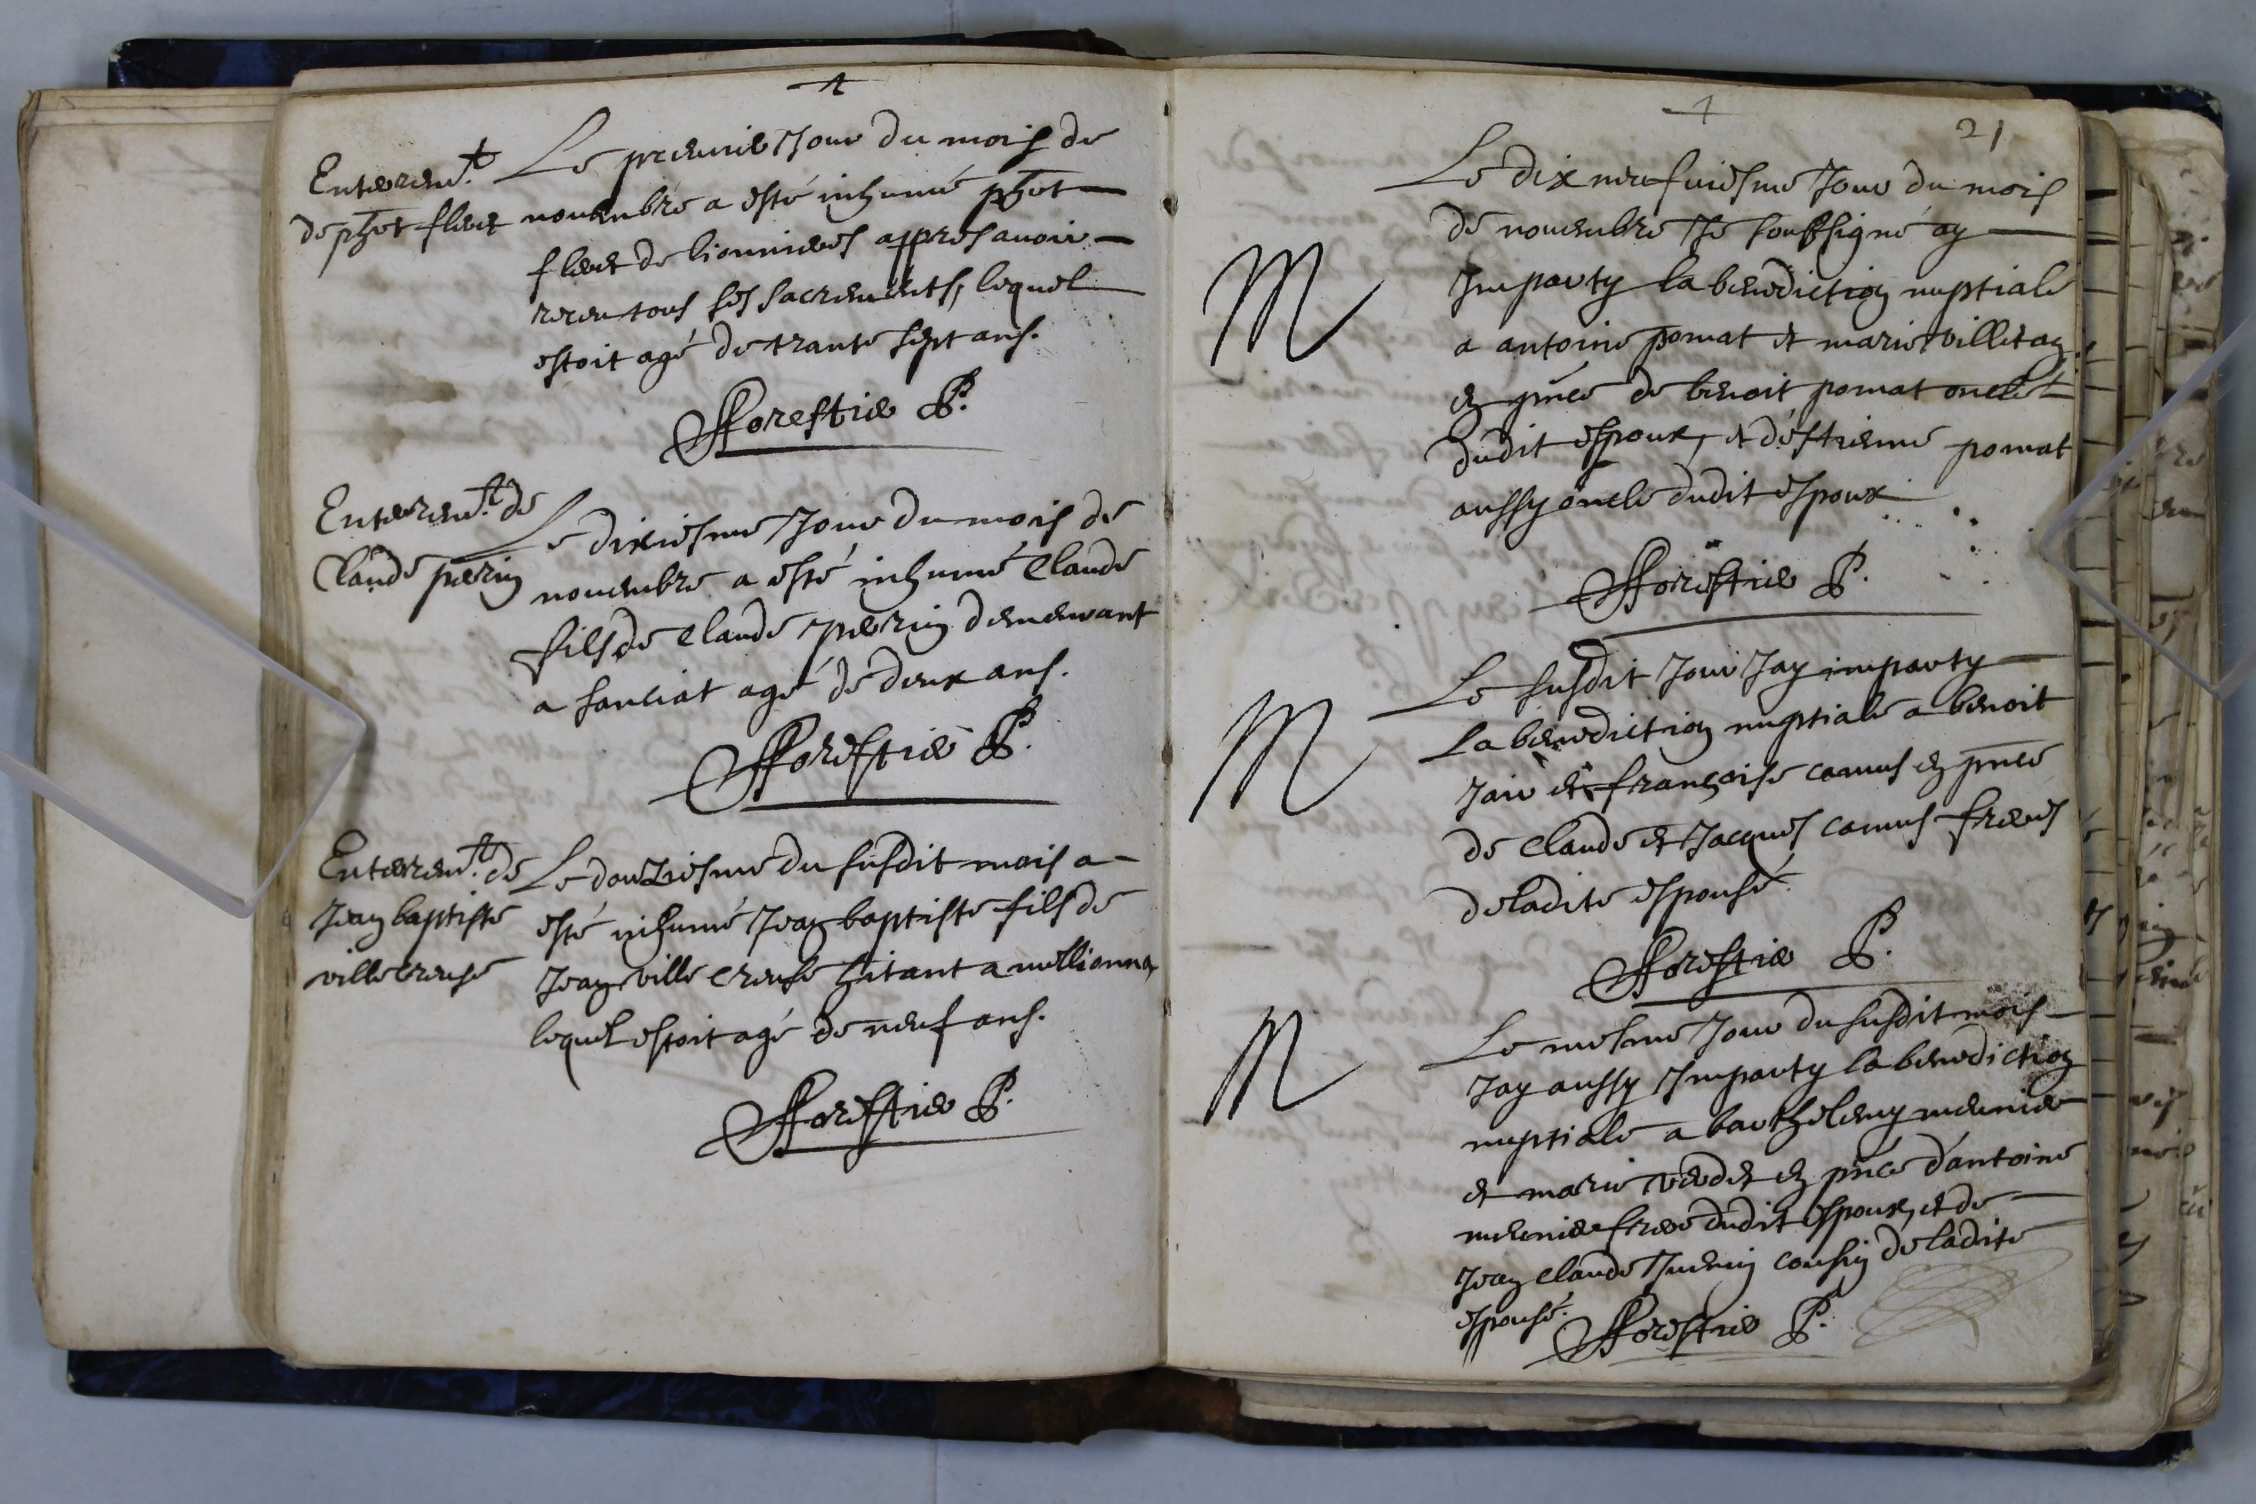 Le premier Jour du mois de
Enterem.t
de phet fleur
novembre a esté inhumé phet
fleur de lionnieres appres avoir
receu tous ses sacrements, lequel
estoit agé de trante sept ans.
fforestier P.
Enterem.t de
Claude perrin
Le dixiesme Jour du mois de
novembre a esté inhumé Claude
fils de Claude perrin demeurant
a sanciat agé de deux ans.
fforestier P.
Enterem.t de
Jean baptiste
villecreuse
Le douziesme du susdit mois a
esté inhumé Jean baptiste fils de
Jean ville creuse hitant a millionna
lequel estoit agé de neuf ans.
fforestier P.
21
Le dix neufviesme Jour du mois
de novembre Je soubsigné ay
M
Imparty la benediction nuptiale
a antoine pomat et marie villet ay
en pnce de benoit pomat oncle
dudit espoux, et d'estienne pomat
aussy oncle dudit espoux
fforestier P.
Le susdit Jour Jay imparty
M
La benediction nuptiale a benoit
et françoise camus en pnce
de Claude et Jacques camus freres
de ladite espouse.
fforestier P.
M
Le mesme Jour du susdit mois
Jay aussy Imparty la benediction
nuptiale a barthelemy meunier
et marie verdet en pnce d'antoine
meunier frere dudit espoux, et de
Jean Claude Juenin cousin de ladite
espouse.
fforestier P.